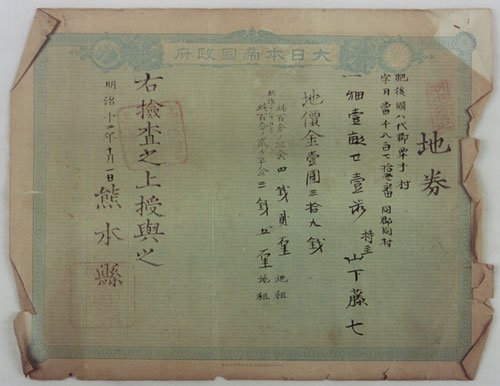 大日本帝國政府
地券
肥後國八代郡栗木村
字日當千八百七拾番 同郡同村
持主 山下藤七
一畑壹畝廿壹歩
地價金壹圓三拾九錢
此百分ノ三金 四錢貳厘 地租
明治十年ヨリ
此百分ノ貳ヶ半金 三錢五厘 地租
右檢査之上授與之
明治十年月一日 熊本縣